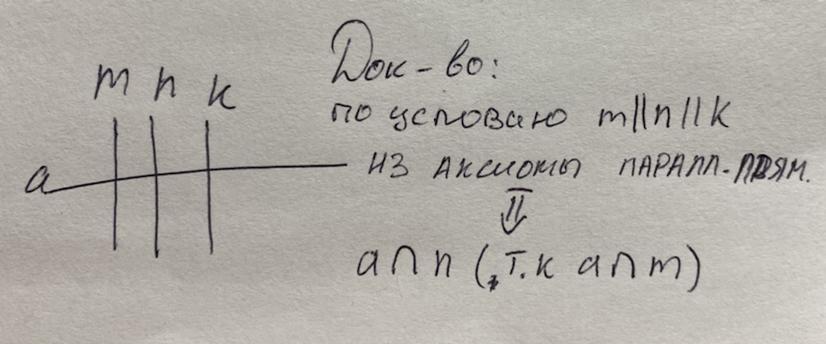 m n k
a
Док-во:
по условию m||n||k
из аксиомы паралл. прям.
⇓
a∩n (, т.к a∩m)